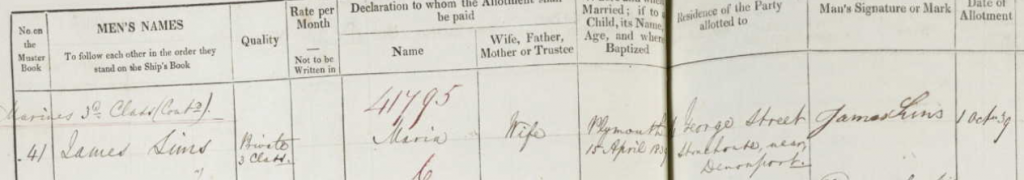 No. on the Muster Book
MEN'S NAMES
To follow each other in the order they
stand on the Ship's Book
Quality
Rate per
Month
Not to be
Written in
Declaration to whom the Allotment
be paid
Name
Wife, Father,
Mother or Trustee
Married; if to a
Child, its Name,
Age, and where
Baptized
Residence of the Party
allotted to
Man's Signature or Mark
Date of
Allotment
Marines 3d Class (Contd).
41795
41
James Sims
Private
3 Class.
Maria
Wife
Plymouth
15 April
George Street
Stonehouse, near
Devonport.
James Sims
1 Oct 39